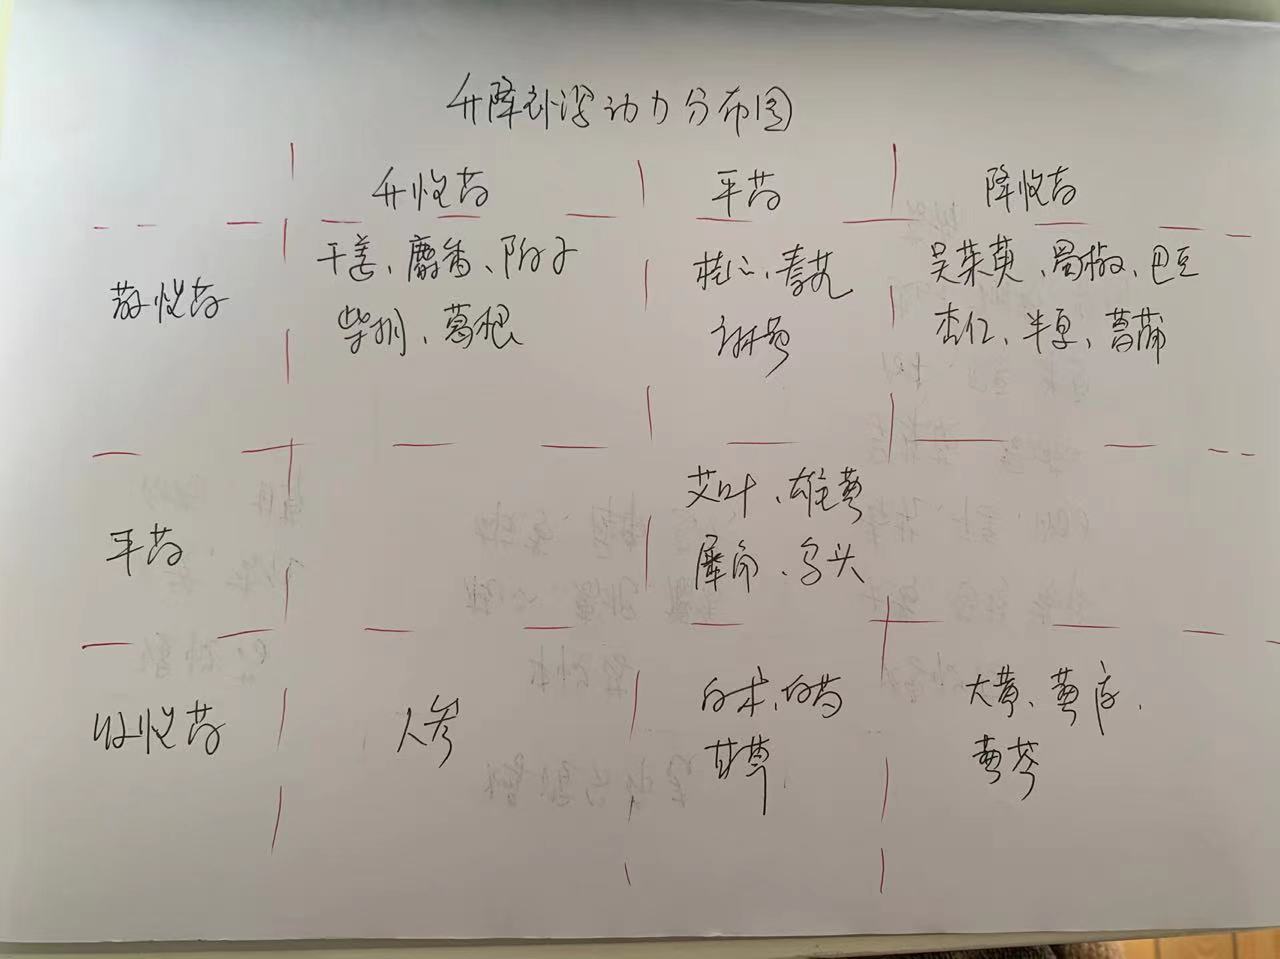 升降补泻动力分布图
升性药 平药 降性药
散性药
干姜、麝香、附子
柴胡、葛根
桂心、秦艽
吴茱萸、蜀椒、巴豆
杏仁、半夏、菖蒲
平药
艾叶、雄黄
犀角、乌头
收性药
人参
白术、白芍
甘草
大黄、黄
黄芩